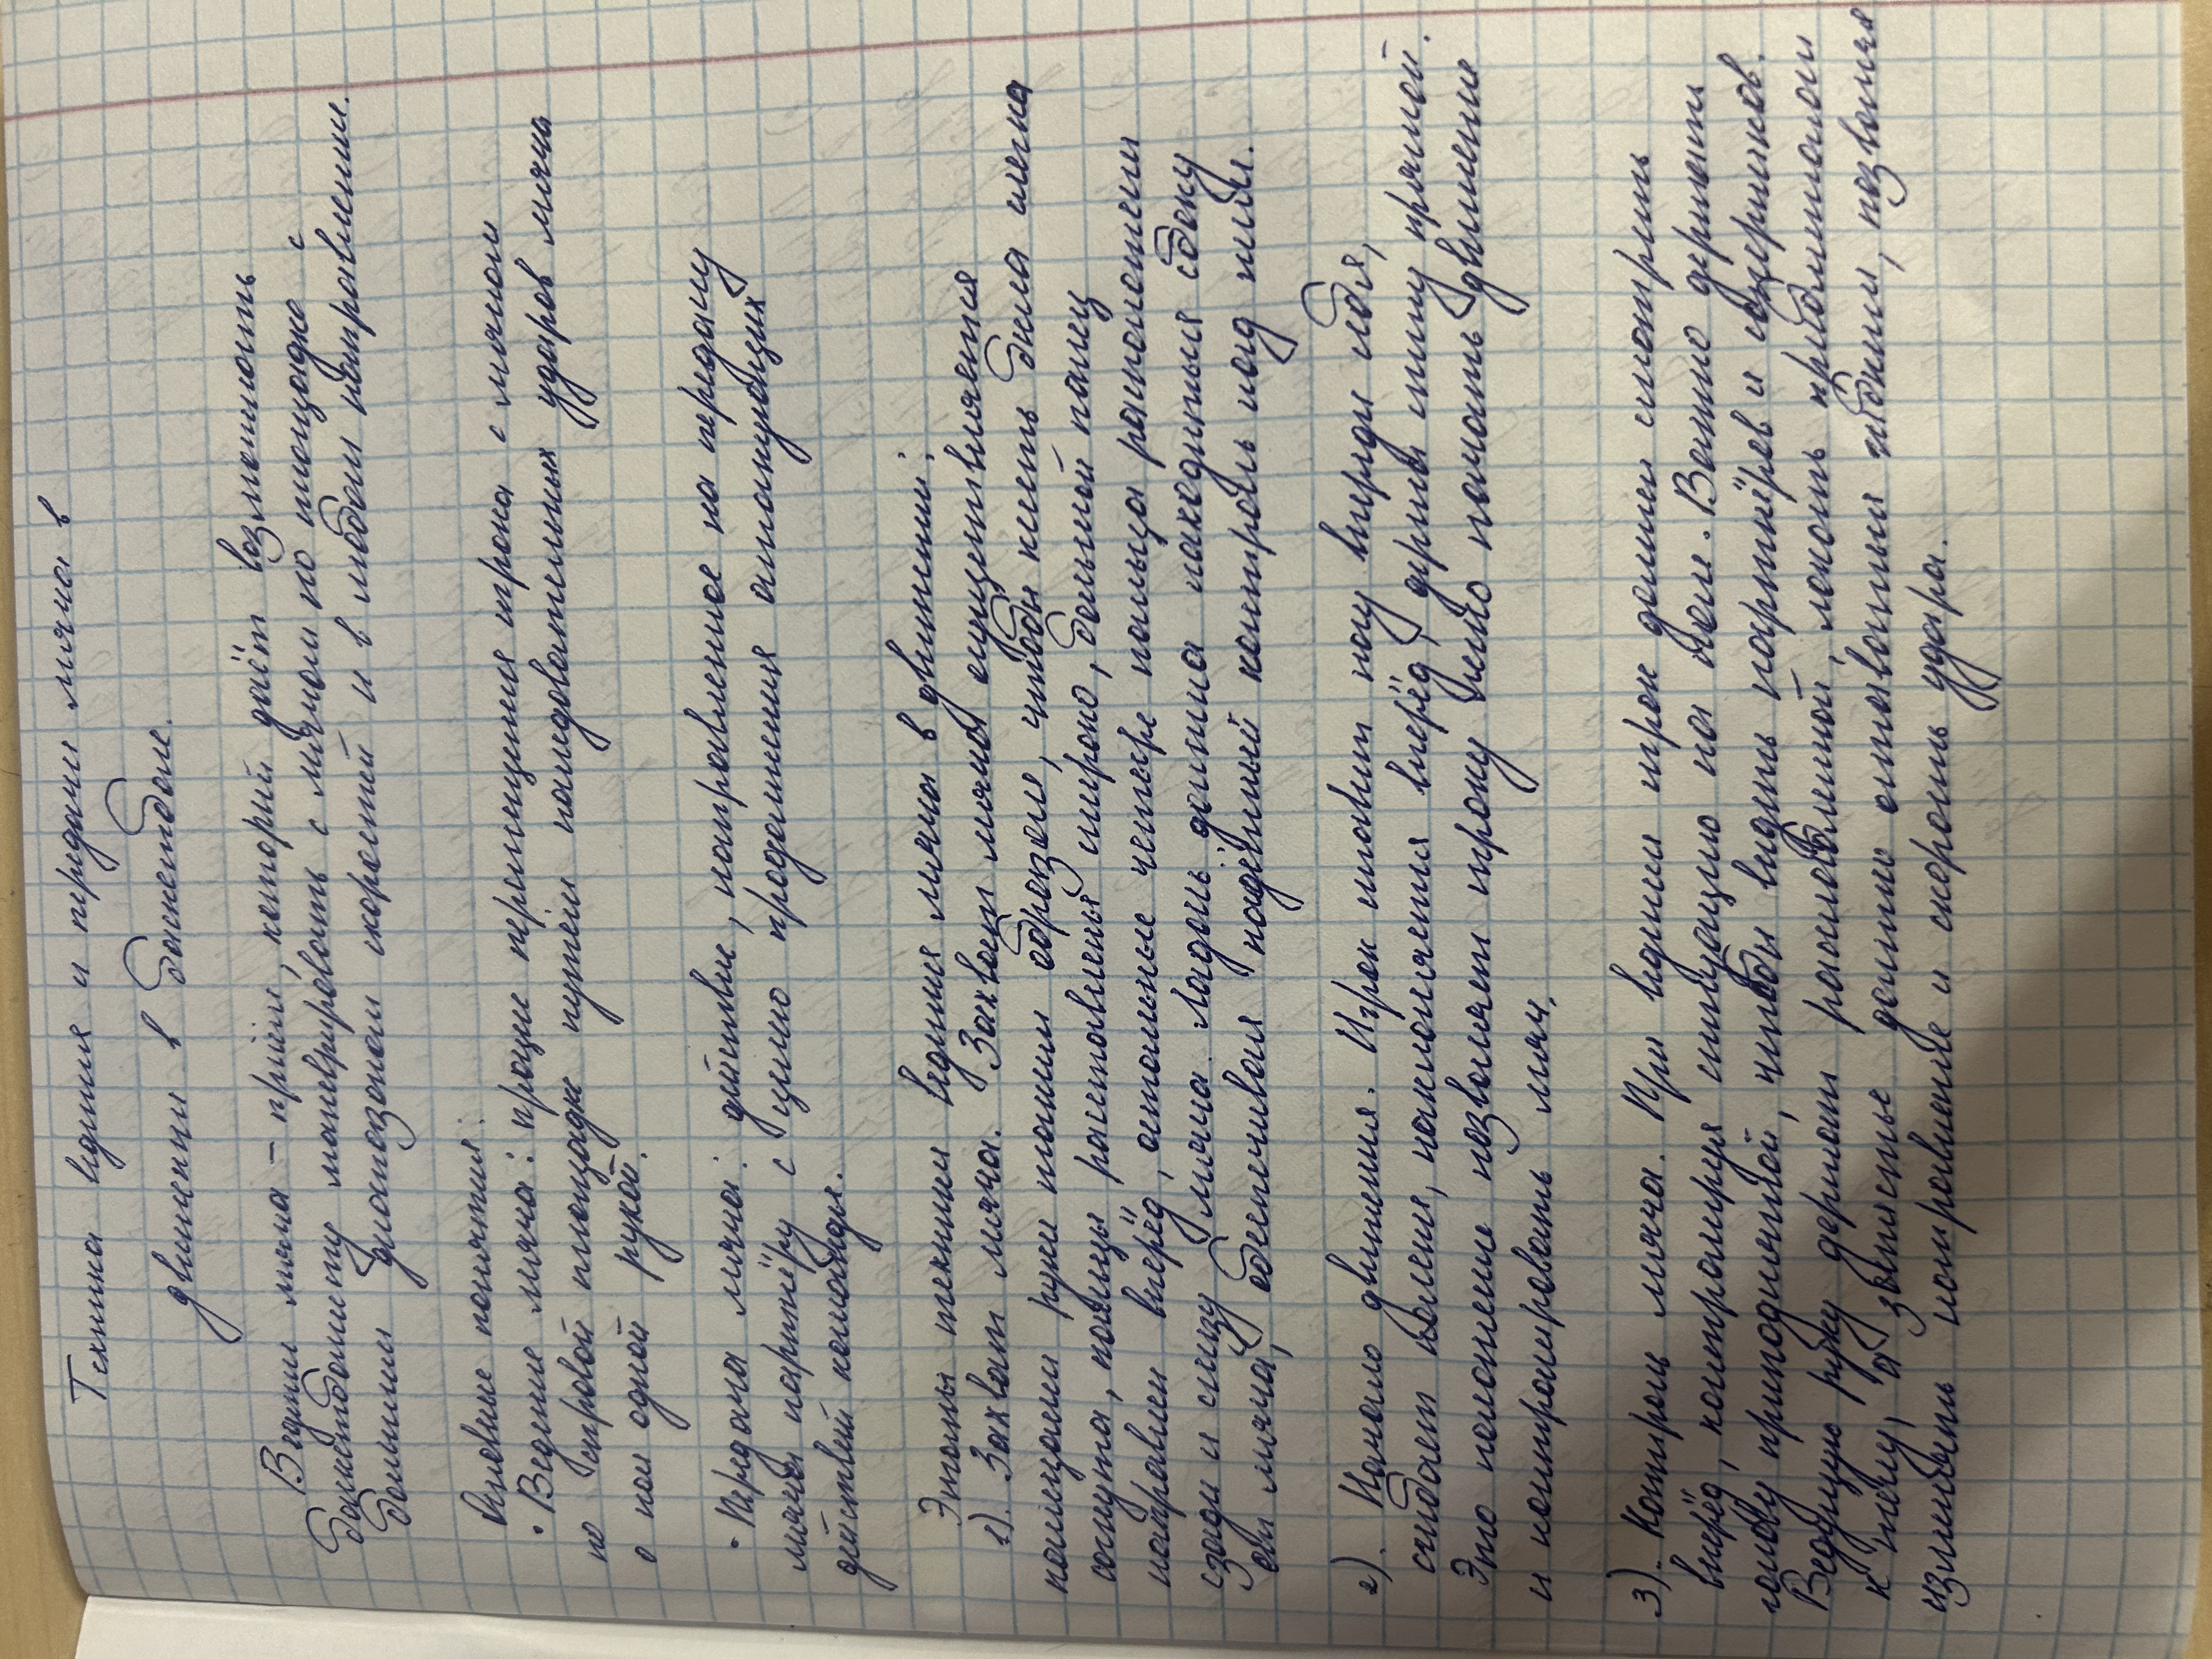 Техника ведения и передачи мяча в
движении в баскетболе.
Ведение мяча – приём, который даёт возможность
баскетболисту маневрировать с мячом по площадке с
большим диапазоном скоростей и в любом направлении.
Основные понятия:
• Ведение мяча: процесс перемещения игрока с мячом
по игровой площадке путём последовательных ударов мяча
о пол одной рукой.
• Передача мяча: действие, направленное на передачу
мяча партнёру с целью продолжения атакующих
действий команды.
Этапы техники ведения мяча в движении:
1). Захват мяча. Захват мяча осуществляется
пальцами руки таким образом, чтобы кисть была слегка
согнута, пальцы расставлены широко, большой палец
направлен вперёд, остальные четыре пальца расположены
сзади и снизу мяча. Ладонь должна находиться сбоку
от мяча, обеспечивая надёжный контроль над ним.
2). Начало движения. Игрок ставит ногу впереди себя,
сгибает колени, наклоняется вперёд, держа спину прямой.
Это положение позволяет игроку легко начать движение
и контролировать мяч.
3). Контроль мяча. При ведении игрок должен смотреть
вперёд, контролируя ситуацию на поле. Важно держать
голову приподнятой, чтобы видеть партнёров и соперников.
Ведущую руку держат расслабленной, локоть приближенным
к телу, а запястье должно оставаться гибким, позволяя
изменять направление и скорость удара.